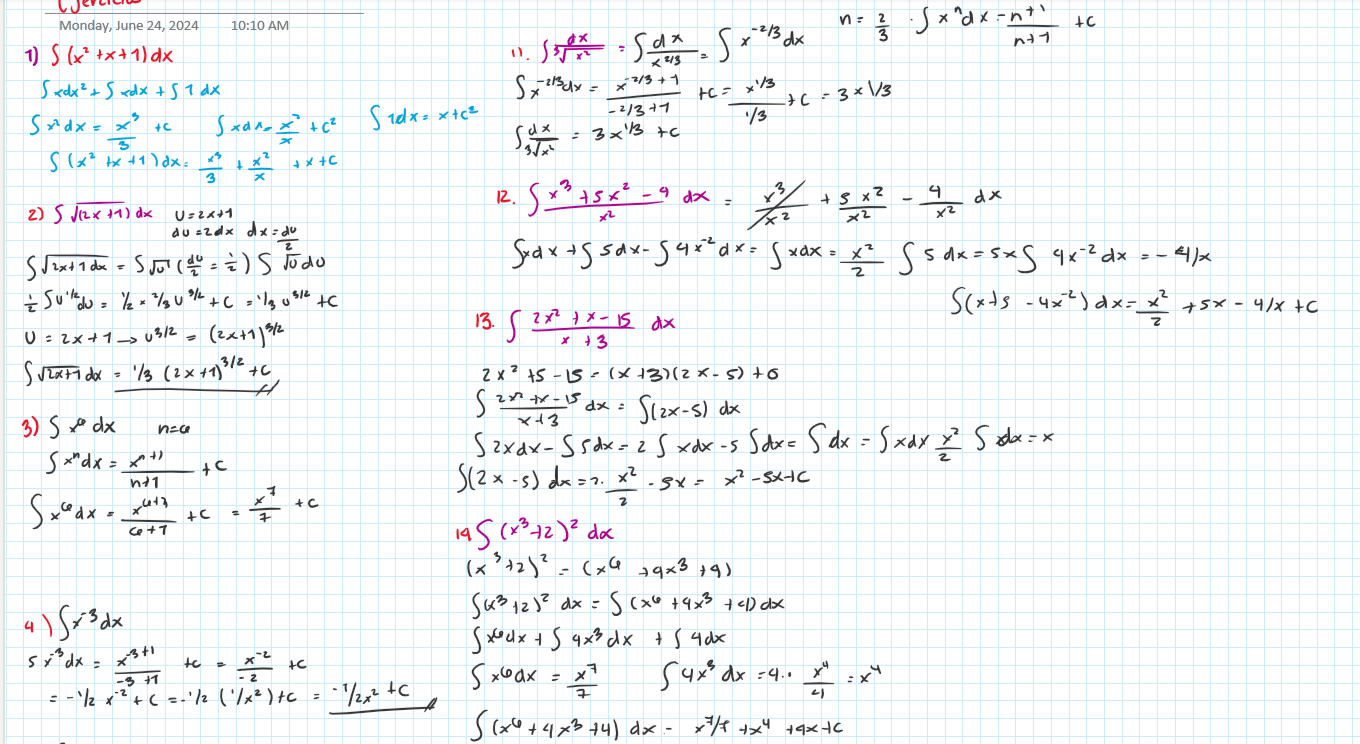 Ejercicios
Monday, June 24, 2024 10:10 AM
1) ∫ (x² + x + 1) dx
∫ xdx² + ∫ xdx + ∫ 1 dx
∫ x² dx = x³/3 + c ∫ xdx = x²/x + c² ∫ 1dx = x + c²
∫ (x² + x + 1) dx = x³/3 + x²/x + x + c
2) ∫ √(2x + 1) dx U = 2x + 1
du = 2dx dx = du/2
∫ √2x + 1 dx = ∫ √u (du/2 = 1/2) ∫ √u du
1/2 ∫ u^1/2 du = 1/2 × 2/3 u^3/2 + c = 1/3 u^3/2 + c
U = 2x + 1 → u^3/2 = (2x + 1)^3/2
∫ √2x+1 dx = 1/3 (2x + 1)^3/2 + c
3) ∫ x⁶ dx n=6
∫ xⁿ dx = x^(n+1)/(n+1) + c
∫ x⁶ dx = x^(6+1)/(6+1) + c = x⁷/7 + c
4) ∫ x⁻³ dx
∫ x⁻³ dx = x^(-3+1)/(-3+1) + c = x⁻²/-2 + c
= -1/2 x⁻² + c = -1/2 (1/x²) + c = -1/2x² + c
n = 2/3 · ∫ xⁿ dx = n+1/n+1 + c
11. ∫ dx/∛x² = ∫ dx/x^2/3 = ∫ x^-2/3 dx
∫ x^-2/3 dx = x^(-2/3+1)/(-2/3+1) + c = x^1/3/1/3 + c = 3 x 1/3
∫ dx/∛x² = 3x^1/3 + c
12. ∫ x³ + 5x² - 4/x² dx = x³/x² + 5x²/x² - 4/x² dx
∫ xdx + ∫ 5dx - ∫ 4x⁻² dx = ∫ xdx = x²/2 ∫ 5 dx = 5x ∫ 4x⁻² dx = -4/x
∫ (x + 5 - 4x⁻²) dx = x²/2 + 5x - 4/x + c
13. ∫ 2x² + x - 15/x + 3 dx
2x² + 5 - 15 = (x + 3)(2x - 5) + 0
∫ 2x² + x - 15/x+3 dx = ∫ (2x-5) dx
∫ 2xdx - ∫ 5dx = 2 ∫ xdx - 5 ∫ dx = ∫ dx = ∫ xdx x²/2 ∫ dx = x
∫ (2x - 5) dx = 2. x²/2 - 5x = x² - 5x + c
14 ∫ (x³ + 2)² dx
(x³ + 2)² = (x⁶ + 4x³ + 4)
∫ (x³ + 2)² dx = ∫ (x⁶ + 4x³ + 4) dx
∫ x⁶ dx + ∫ 4x³ dx + ∫ 4dx
∫ x⁶ dx = x⁷/7 ∫ 4x³ dx = 4·. x⁴/4 = x⁴
∫ (x⁶ + 4x³ + 4) dx - x⁷/7 + x⁴ + 4x + c